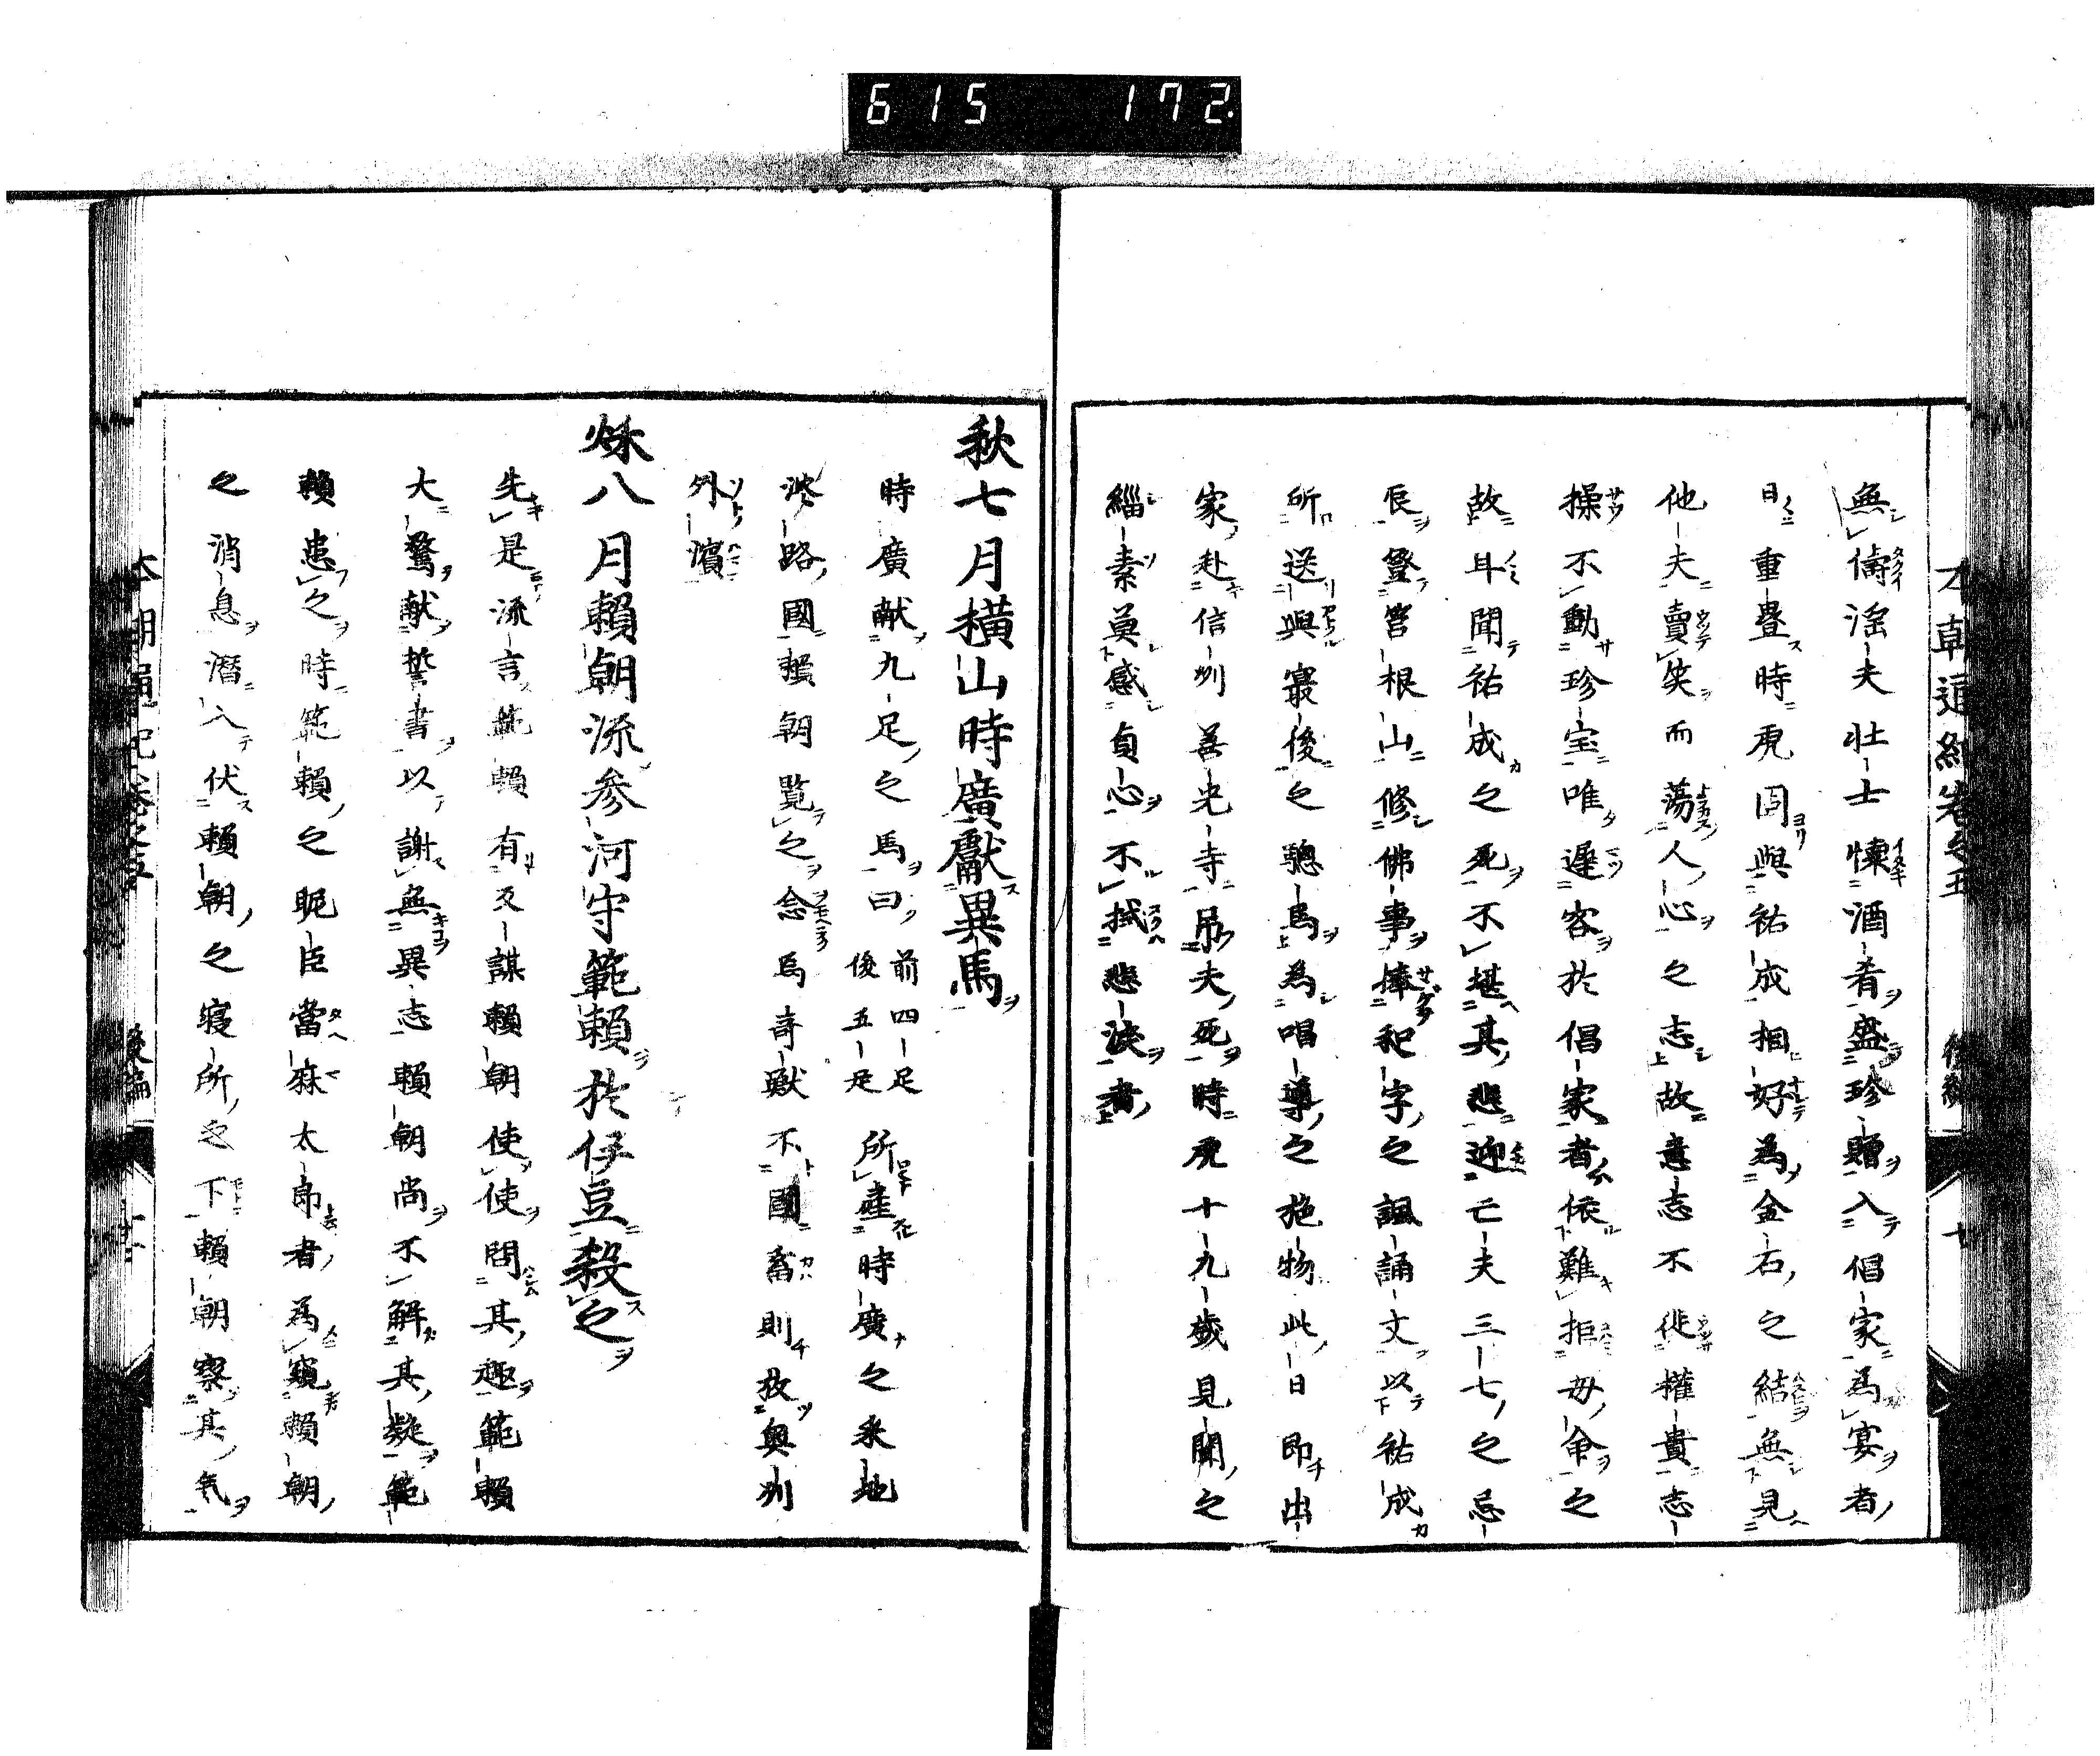 615 172
本朝通紀卷之五 後編
無儔淫夫壮士悚酒肴盛珍贈入倡家為宴者
日重疊時虎固與祐成相好為金石之結無見
他夫賣笑而蕩人心之志故意志不徙權貴志
操不動珍宝唯遲客於倡家者依難拒毋命之
故耳聞祐成之死不堪其悲迎亡夫三七之忌
辰登筥根山修佛事捧和字之諷誦文以祐成
所送與寂後之驄馬為唱導之施物此日即出
家赴信州善光寺吊夫死時虎十九歲見聞之
緇素莫感貞心不拭悲淚者
秋七月横山時廣獻異馬
時廣献九足之馬曰前四足後五足所產時廣之釆地
淡路國賴朝覧之念為奇獣不國畜則放奥州
外濱
秌八月賴朝流参河守範賴於伊豆殺之
先是流言範賴有反謀賴朝使使問其趣範賴
大驚献誓書以謝無異志賴朝尚不解其疑範
賴患之時範賴之昵臣當麻太郎者為窺賴朝
之消息潛入伏賴朝之寝所之下賴朝察其気
本朝通紀卷之五 後編